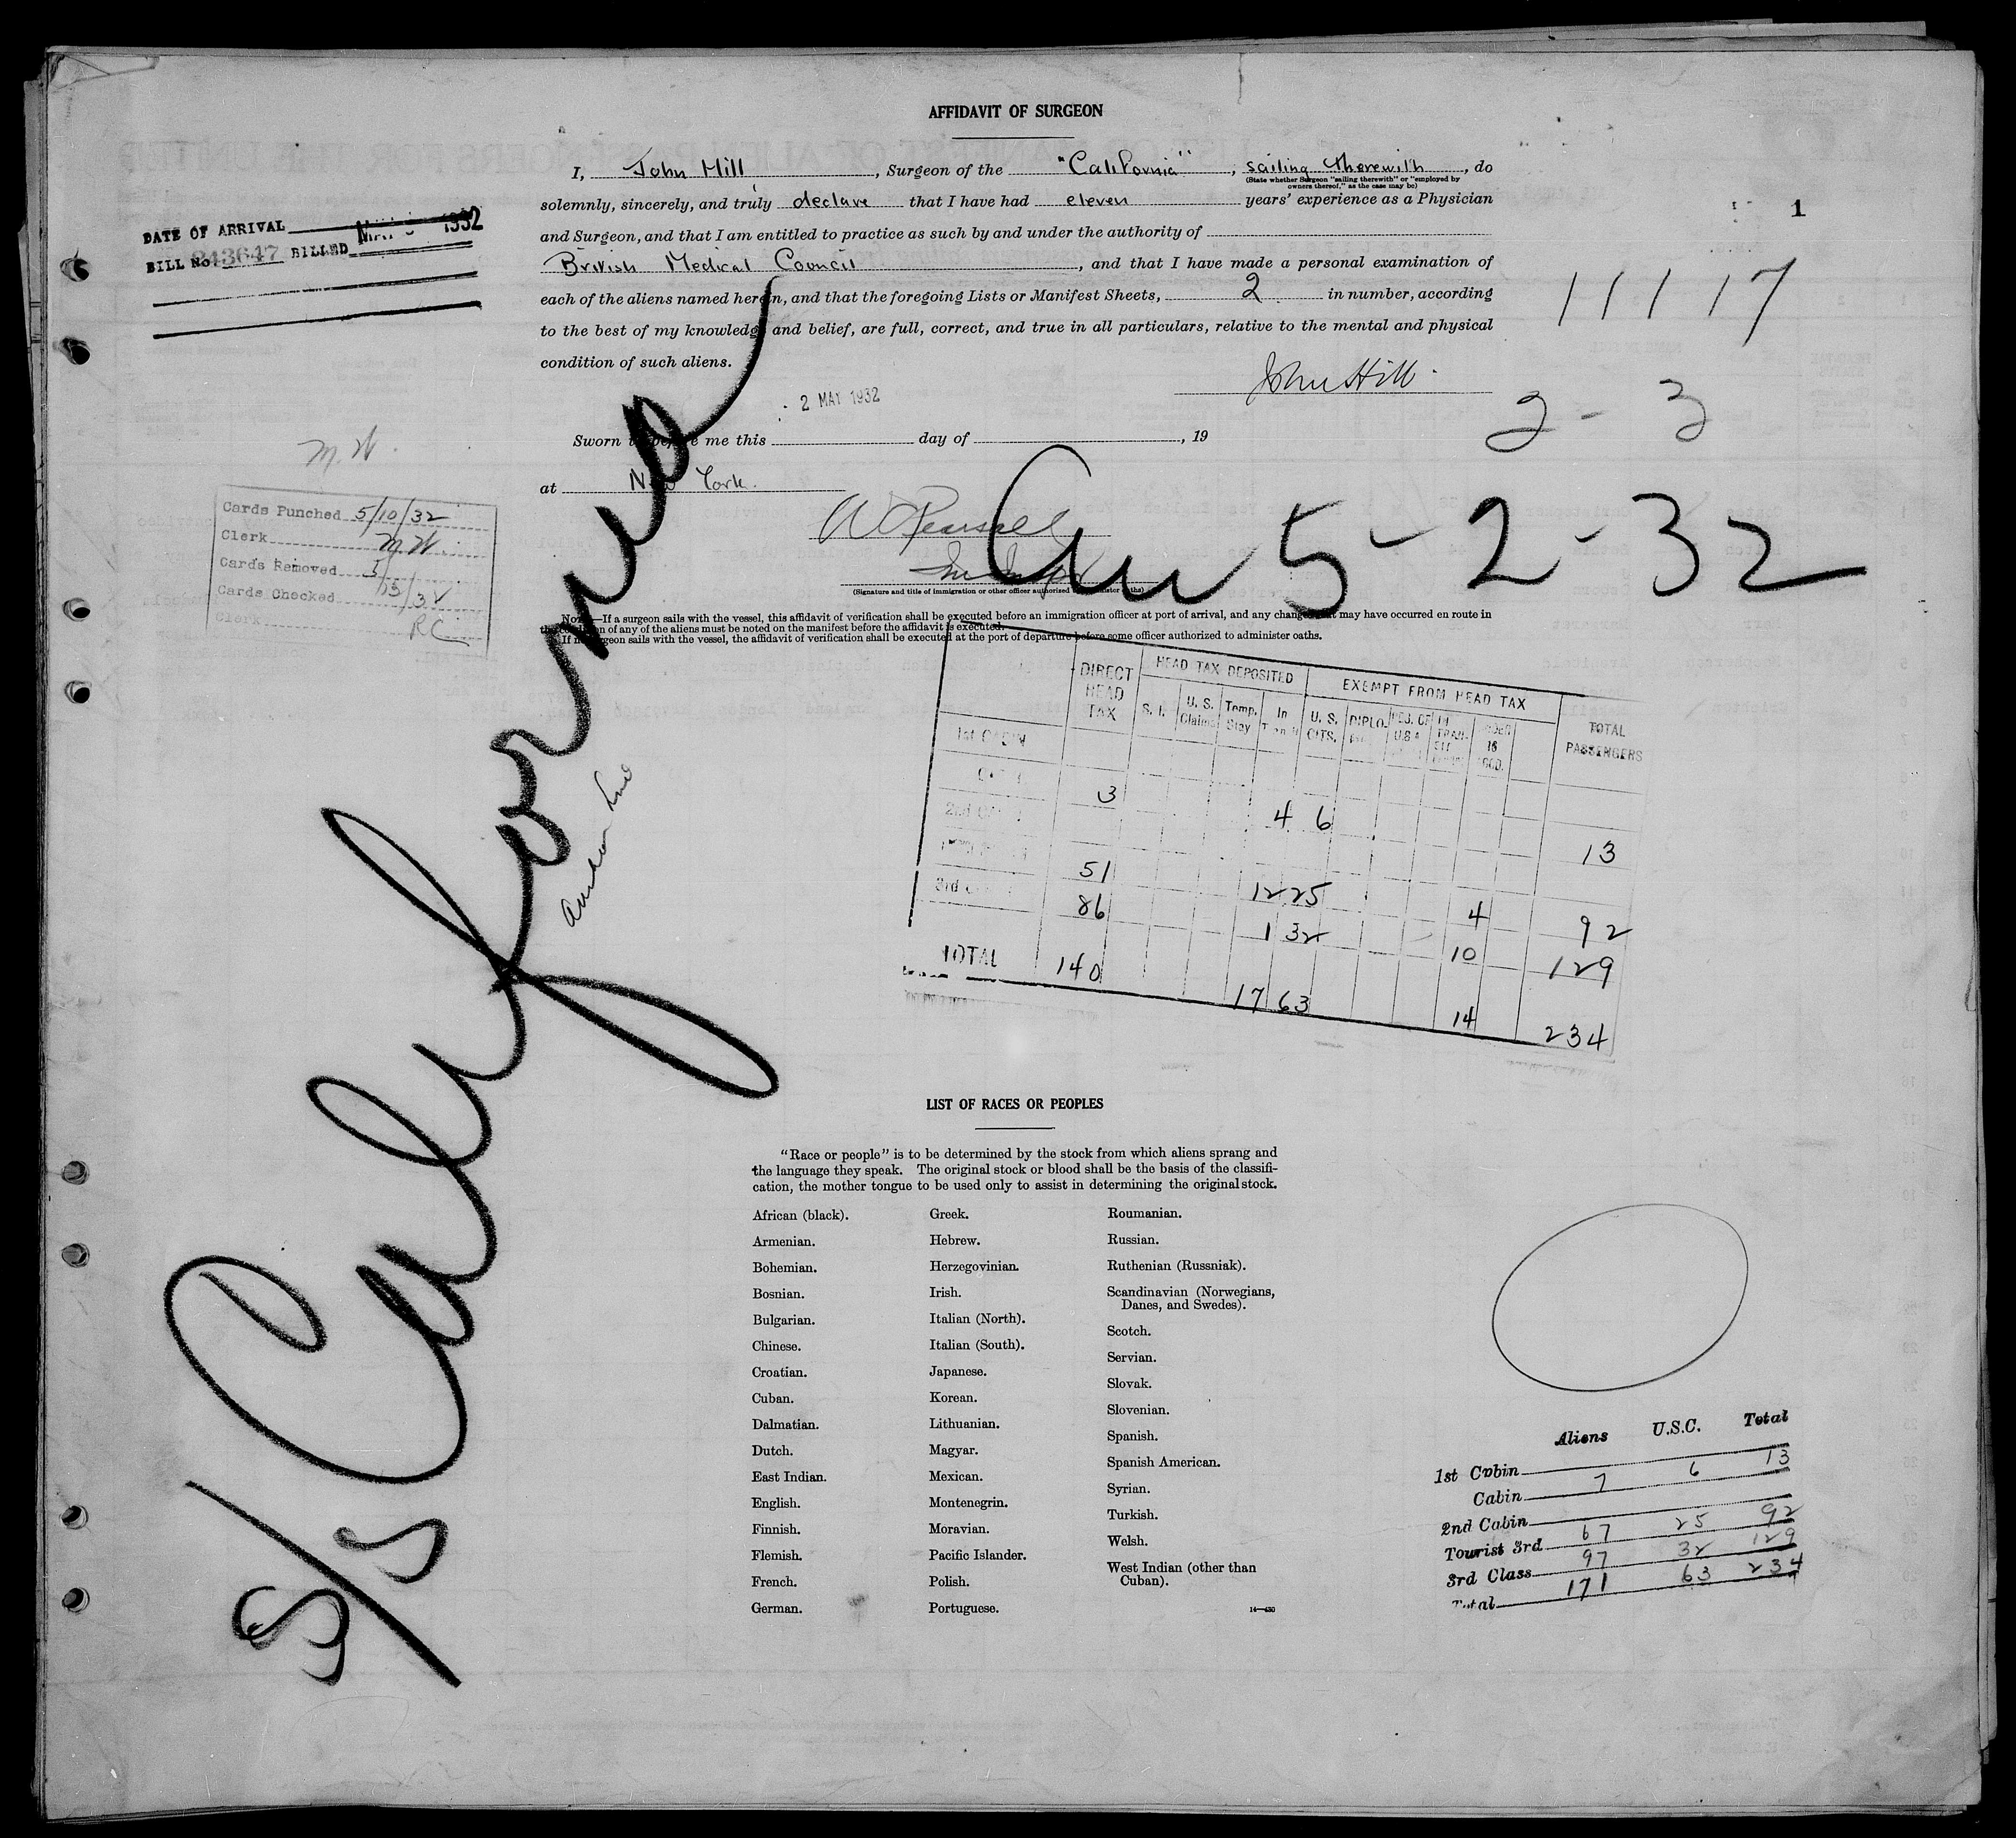 AFFIDAVIT OF SURGEON
I, John Hill, Surgeon of the "California", sailing therewith, do
(State whether Surgeon "sailing therewith" or "employed by
owners thereof," as the case may be)
solemnly, sincerely, and truly declare that I have had eleven years' experience as a Physician
and Surgeon, and that I am entitled to practice as such by and under the authority of
British Medical Council, and that I have made a personal examination of
each of the aliens named herein, and that the foregoing Lists or Manifest Sheets, 2 in number, according
to the best of my knowledge and belief, are full, correct, and true in all particulars, relative to the mental and physical
condition of such aliens.
John Hill.
2 MAY 1932
Sworn to before me this day of , 19
at New York.
W Pearsall
(Signature and title of immigration or other officer authorized to administer oaths)
NOTE.—If a surgeon sails with the vessel, this affidavit of verification shall be executed before an immigration officer at port of arrival, and any changes that may have occurred en route in
the condition of any of the aliens must be noted on the manifest before the affidavit is executed.
If no surgeon sails with the vessel, the affidavit of verification shall be executed at the port of departure before some officer authorized to administer oaths.
DATE OF ARRIVAL
MAY 1932
BILL No. 243647 BILLED
1
11117
2 - 3
5-2-32
M.W.
Cards Punched 5/10/32
Clerk M W.
Cards Removed
Cards Checked
Clerk RC
S/S California
Anchor Line
DIRECT HEAD TAX
HEAD TAX DEPOSITED
EXEMPT FROM HEAD TAX
TOTAL PASSENGERS
S. I. U. S. Claims Temp. Stay In Transit U. S. CITS. DIPLO- U.S.A. 16
1st CABIN
3 4 6 13
51 12 25 4 92
86 1 32 10 129
TOTAL 140 17 63 14 234
LIST OF RACES OR PEOPLES
"Race or people" is to be determined by the stock from which aliens sprang and
the language they speak. The original stock or blood shall be the basis of the classifi-
cation, the mother tongue to be used only to assist in determining the original stock.
African (black).
Armenian.
Bohemian.
Bosnian.
Bulgarian.
Chinese.
Croatian.
Cuban.
Dalmatian.
Dutch.
East Indian.
English.
Finnish.
Flemish.
French.
German.
Greek.
Hebrew.
Herzegovinian.
Irish.
Italian (North).
Italian (South).
Japanese.
Korean.
Lithuanian.
Magyar.
Mexican.
Montenegrin.
Moravian.
Pacific Islander.
Polish.
Portuguese.
Roumanian.
Russian.
Ruthenian (Russniak).
Scandinavian (Norwegians,
Danes, and Swedes).
Scotch.
Servian.
Slovak.
Slovenian.
Spanish.
Spanish American.
Syrian.
Turkish.
Welsh.
West Indian (other than
Cuban).
14—430
Aliens U.S.C. Total
1st Cabin
Cabin 7 6 13
2nd Cabin
Tourist 3rd 67 25 92
3rd Class 97 32 129
Total 171 63 234